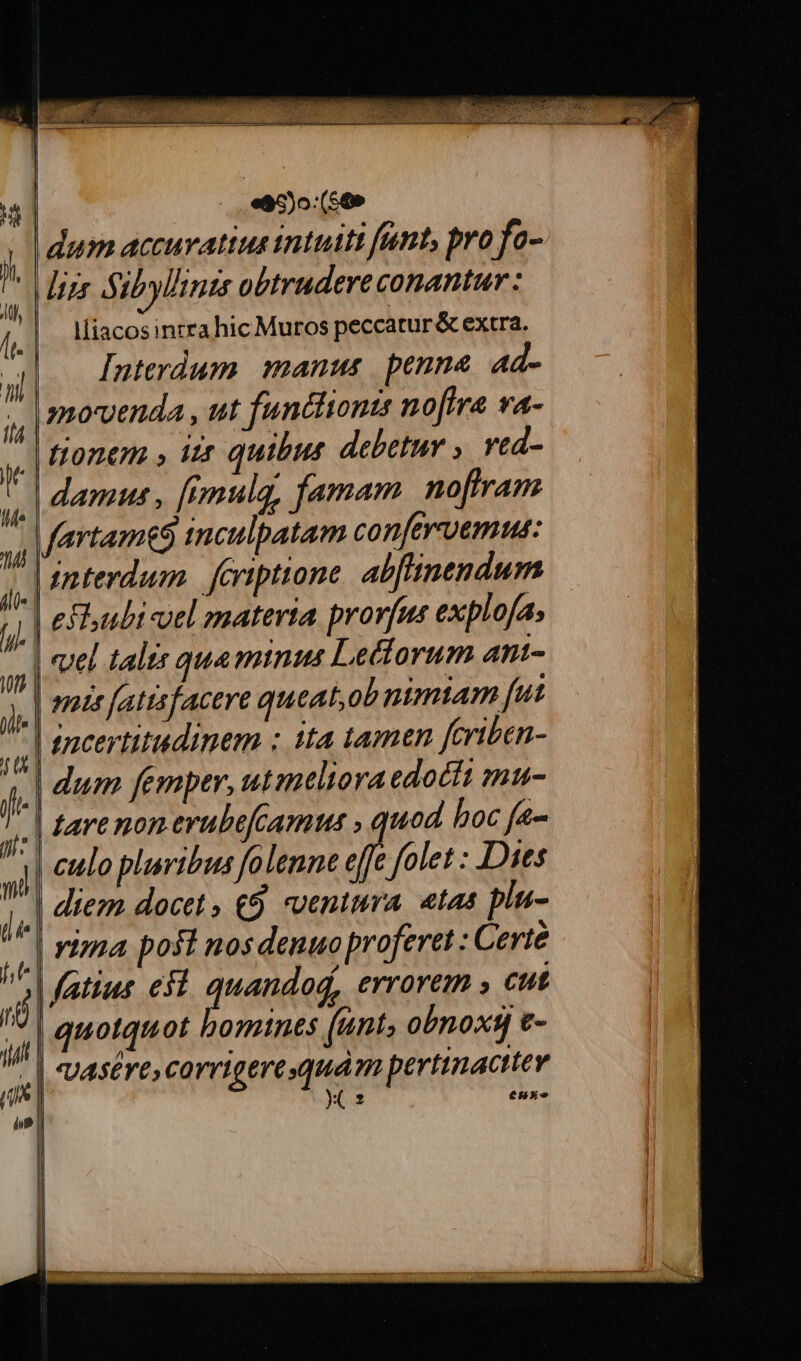 )o:(
dum accuratius intuiti sunt, pro fo-
liis Sibyllinis obtrudere conantur:
Iliacos intra hic Muros peccatur & extra.
Interdum manus pennæ ad-
movenda, ut functionis nostræ ra-
tionem, iis quibus debetur, red-
damus, simulq́, famam nostram
sartam & inculpatam conservemus:
interdum scriptione abstinendum
est, ubi vel materia prorsus explosa,
vel talis quæ minus Lectorum ani-
mis satisfacere queat, ob nimiam sui
incertitudinem : ita tamen scriben-
dum semper, ut meliora edocti mu-
tare non erubescamus, quod hoc sæ-
culo pluribus solenne esse solet : Dies
diem docet, & ventura ætas plu-
rima post nos denuo proferet : Certè
satius est quandoq́, errorem, cui
quotquot homines sunt, obnoxij e-
vasêre, corrigere, quàm pertinaciter
)( 2